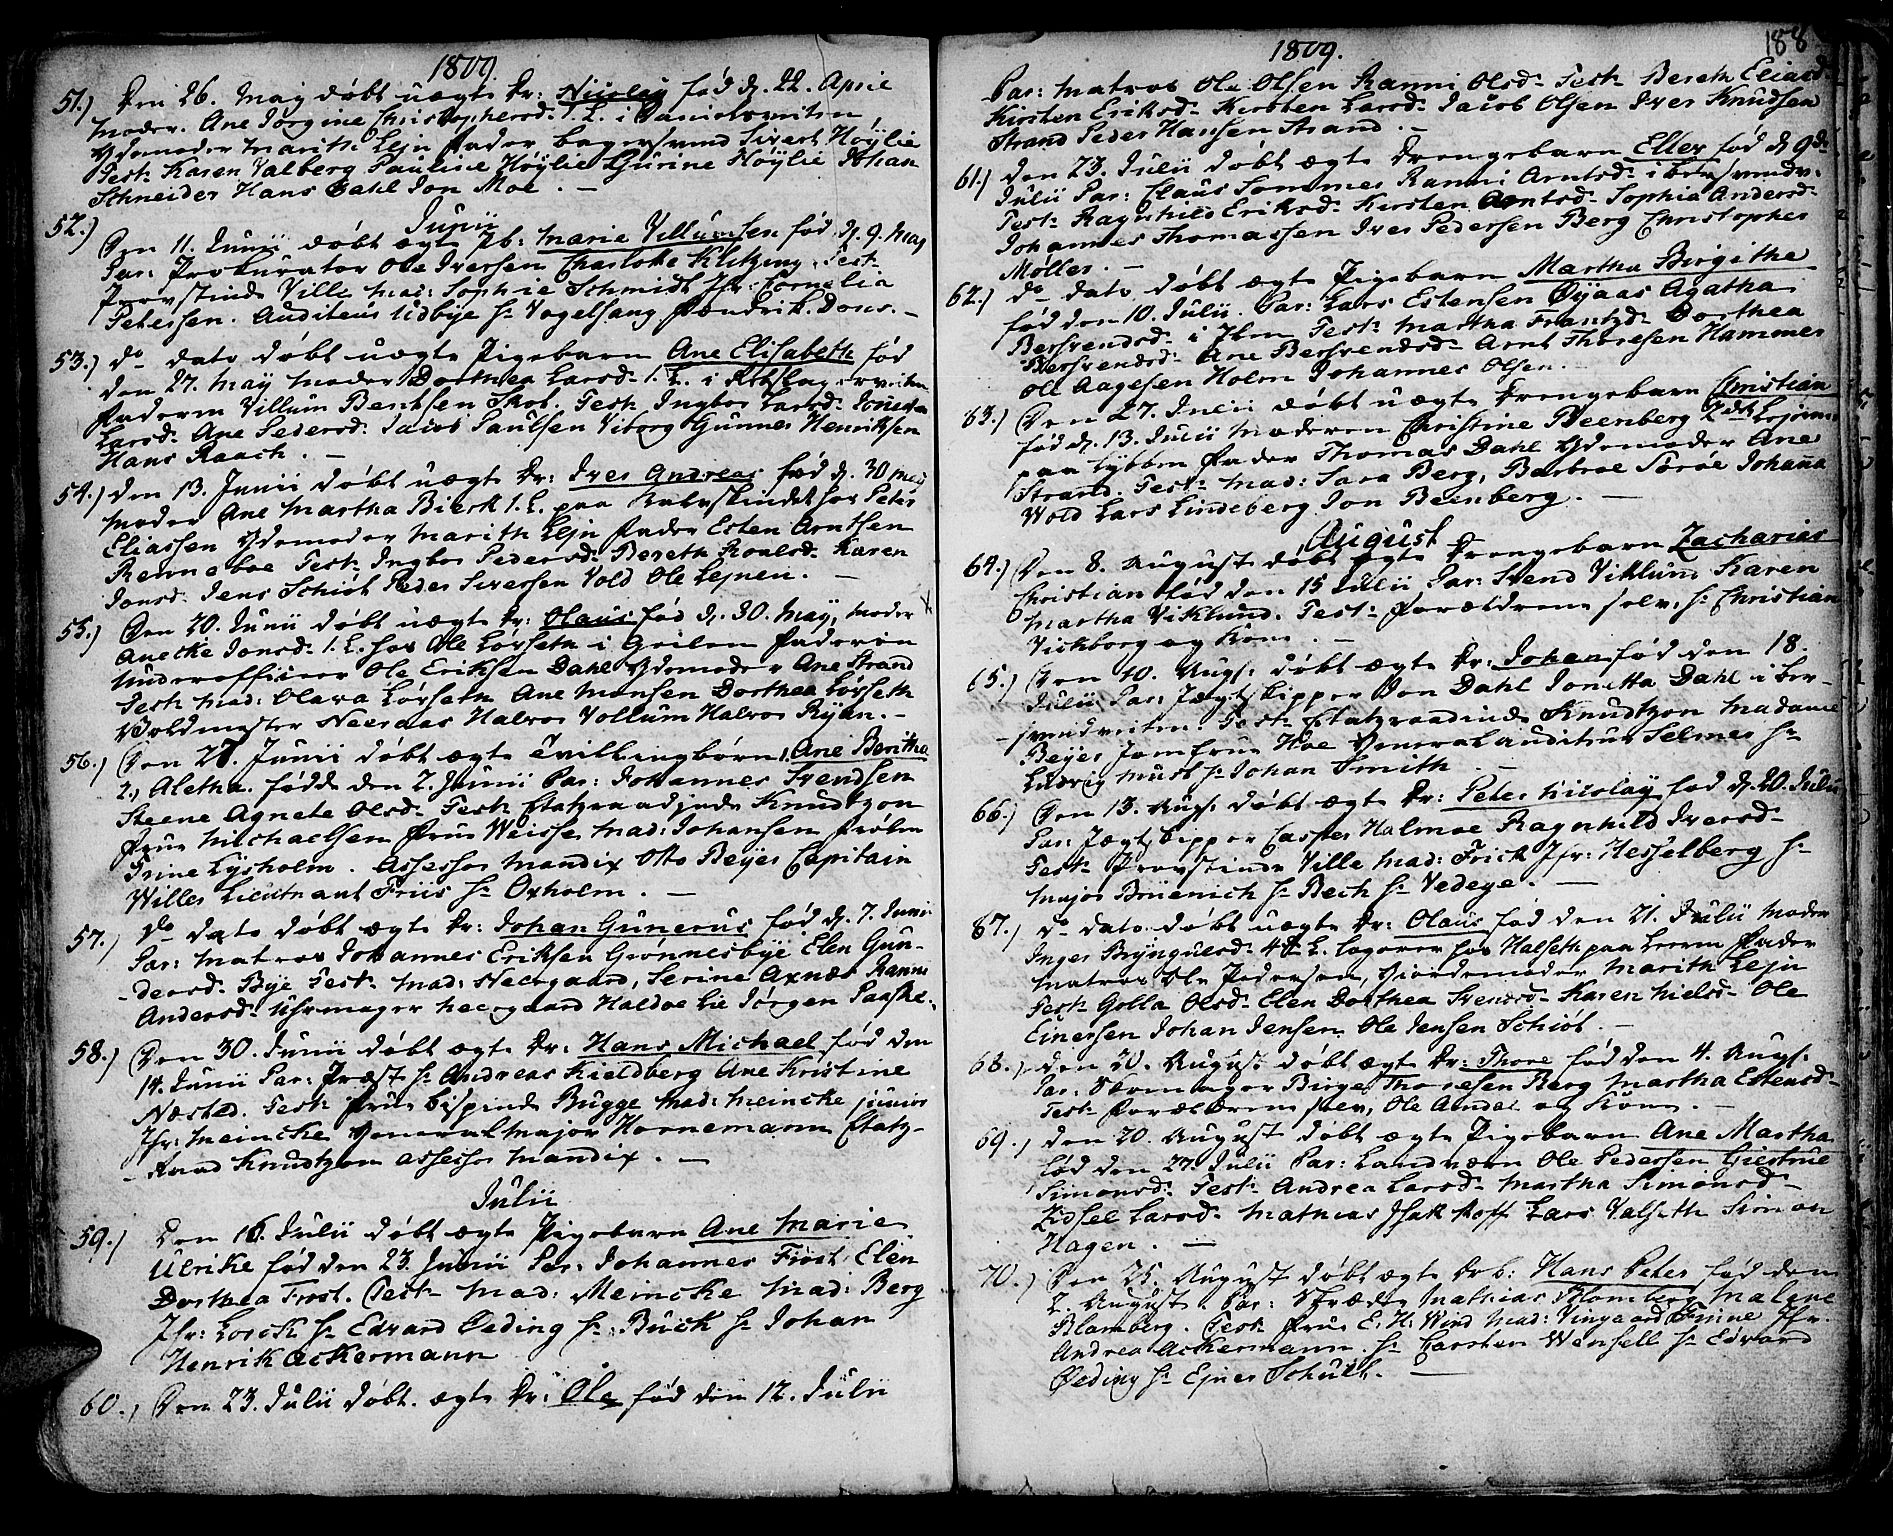 1809.
51.) Den 26. May døbt uægte Dr: Nicolay fød d. 22. April
Moder. Ane Jørgine Christophersd: 1. L. i Danielsveiten
Ydemoder Marith Lejn Fader bagersvend Sivert Høÿlie
Test: Karen Valberg Pauline Høÿlie Gurine Høÿlie Johan
Schneider Hans Dahl Jon Moe. —
Junii
52.) Den 11. Junii døbt ægte Pb: Marie Villumsen fød d. 9. May
Par: Prokurator Ole Iversen Charlotte Klitzing Test:
Provstinde Ville Mad: Sophie Schmidt Jfr: Cornelia
Petersen. Auditeur Udbye Hr Vogelsang Hendrik Dons. —
53.) do dato døbt uægte Pigebarn Ane Elisabeth fød
den 27. May Moder Dorthea Larsd: 1. L. i
Faderen Villum Bentsen Skot. Test: Ingbor Larsd:
Larsd: Ane Pedersd: Jacob Paulsen Viborg Gunner Henriksen
Hans Raach. —
54.) den 13. Junii døbt uægte Dr: Iver Andreas fød d. 30 May
Moder Ane Martha Bierk 1. L. paa hos Peter
Eliassen Ydemoder Marith Lejn Fader Esten Arntsen
Renneboe Test: Ingbor Pedersd: Bereth Roalsd: Karen
Jonsd: Jens Schiøt Peder Iversen Vold Ole Lejnen. —
55.) Den 20. Junii døbt uægte Dr: Olaus fød d. 30. May, Moder
Anecke Jonsd: 1. L. hos Ole Lørseth i Grilen Faderen
Underofficeer Ole Eriksen Dahl Ydemoder Ane Strand
Test: Mad: Olava Lørseth Ane Monsen Dorthea Lørseth
Voldmester Neeraas Halvor Vollum Halvor Rÿan. —
56.) Den 27. Junii døbt ægte Tvillingbørn 1. Ane Beritha
2, Aletha. fødde den 2. Junii Par: Johannes Svendsen
Steene Agnete Olsd: Test: Etatzraadinde Knudtzon
Frue Michaelsen Frue Weisse Mad: Johansen Frøken
Trine Lysholm. Assessor Mandix Otto Beyer Capitain
Willer Lieutnant Friis Hr Oxholm. —
57.) do dato døbt ægte Dr: Johan Gunerus fød d. 7. Junii
Par: Matros Johannes Eriksen Grønnesbÿe Elen Gun-
dersd: Bÿe Test: Mad: Neergaard, Serine Axnæs Ranni
Andersd: Uhrmager Neergaard Haldoe Lie Jørgen Paaske.
58.) Den 30. Junii døbt ægte Dr: Hans Michael fød den
14. Junii Par: Præst Hr Andreas Kieldberg Ane Kristine
Næstad. Test: Frue Bispinde Bugge Mad: Meincke junior
Jfr: Meincke Generalmajor Hornemann Etatz-
Raad Knudtzon Assessor Mandix. —
Julii
59.) Den 16. Julii døbt ægte Pigebarn Ane Marie
Ulrike fød den 23. Junii Par: Johannes Frøst Elen
Dorthea Frost. Test: Mad: Meincke Mad: Berg
Jfr: Lorck Hr Edvard Øeding Hr Buck Hr Johan
Henrik Ackermann
60.) Den 23. Julii døbt. ægte Dr: Ole fød den 12. Julii
1809.
188
Par: Matros Ole Olsen Ranni Olsd: Test: Bereth Eliasd:
Kirsten Eriksd: Kirsten Larsd: Jacob Olsen Iver Knudsen
Strand Peder Hansen Strand. —
61.) den 23. Julii døbt ægte Drengebarn Eller fød d. 9de
Julii Par: Claus Sommer Ranni Arntsd: i
Test: Ragnhild Eriksd: Kirsten Arntsd: Sophia Andersd:
Johannes Thomassen Iver Pedersen Berg Christopher
Møller. —
62.) do dato døbt ægte Pigebarn Martha Birgithe
fød den 10. Julii. Par: Lars Estensen Øÿaas Agatha
Bersvendsd: i Ilen Test: Martha Frantzd: Dorthea
Bersvendsd: Ane Bersvendsd: Arnt Thoresen Hammer
Ole Aagesen Holm Johannes Olsen. —
63.) Den 27. Julii døbt uægte Drengebarn Christian
fød d. 13. Julii Moderen Christine Beenberg 2det Lejerm:
paa Lÿbben Fader Thomas Dahl Ydemoder Ane
Strand. Test: Mad: Sara Berg, Barbroe Sorøe Johanna
Wold Lars Lindeberg Jon Beenberg. —
August
64.) Den 8. August døbt ægte Drengebarn Zacharias
Christian fød den 15 Julii Par: Svend Viklund Karen
Martha Viklund. Test: Forældrene selv, Hr Christian
Vickborg og Kone. —
65.) Den 10. Aug: døbt ægte Dr: Johan fød den 18.
Julii Par: Jægtskipper Jon Dahl Jonetta Dahl i Ber-
svendveiten. Test: Etatzraadinde Knudtzon Madame
Beyer Jomfrue Hoe Generalauditeur Selmer Hr
Ludvig Must Hr Johan Smith. —
66.) Den 13. Aug: døbt ægte Dr: Peter Nicolay fød d. 20. Julii
Par: Jægtskipper Casper Halmoe Ragnhild Iversd:
Test: Provstinde Ville Mad: Frick Jfr: Hesselberg Hr
Major Brüenich Hr Bech Hr Vedege. —
67.) do dato døbt uægte Dr: Olaus fød den 21. Julii Moder
Inger Brÿngulsd: 4de L. logerer hos Halseth paa Leeren Fader
Matros Ole Pedersen, Giordemoder Marith Lejn
Test: Golla Olsd: Elen Dorthea Svensd: Karen Nielsd: Ole
Einersen Johan Jensen Ole Jensen Schiøt. —
68.) den 20. August døbt ægte Dr: Thore fød den 4. Aug:
Par: Skomager Birge Thoresen Berg Martha Estensd:
Test: Forældrene selv, Ole Andal og Kone. —
69.) den 20. August døbt ægte Pigebarn Ane Martha
fød den 27. Julii Par: Landværn Ole Pedersen Giertrue
Simonsd: Test: Andrea Larsd: Martha Simonsd:
Zidsel Larsd: Mathias Isak Hoff Lars Valseth Simon
Hagen. —
70.) Den 25. August døbt ægte Drb: Hans Peter fød den
2. August Par: Skræder Mathias Blomberg Malene
Blomberg. Test: Frue E. H. Wind Mad: Vingaard Trine Jfr.
Andrea Ackermann. Hr Carsten Wensell Hr Edvard
Øeding Hr Ejner Schult. —